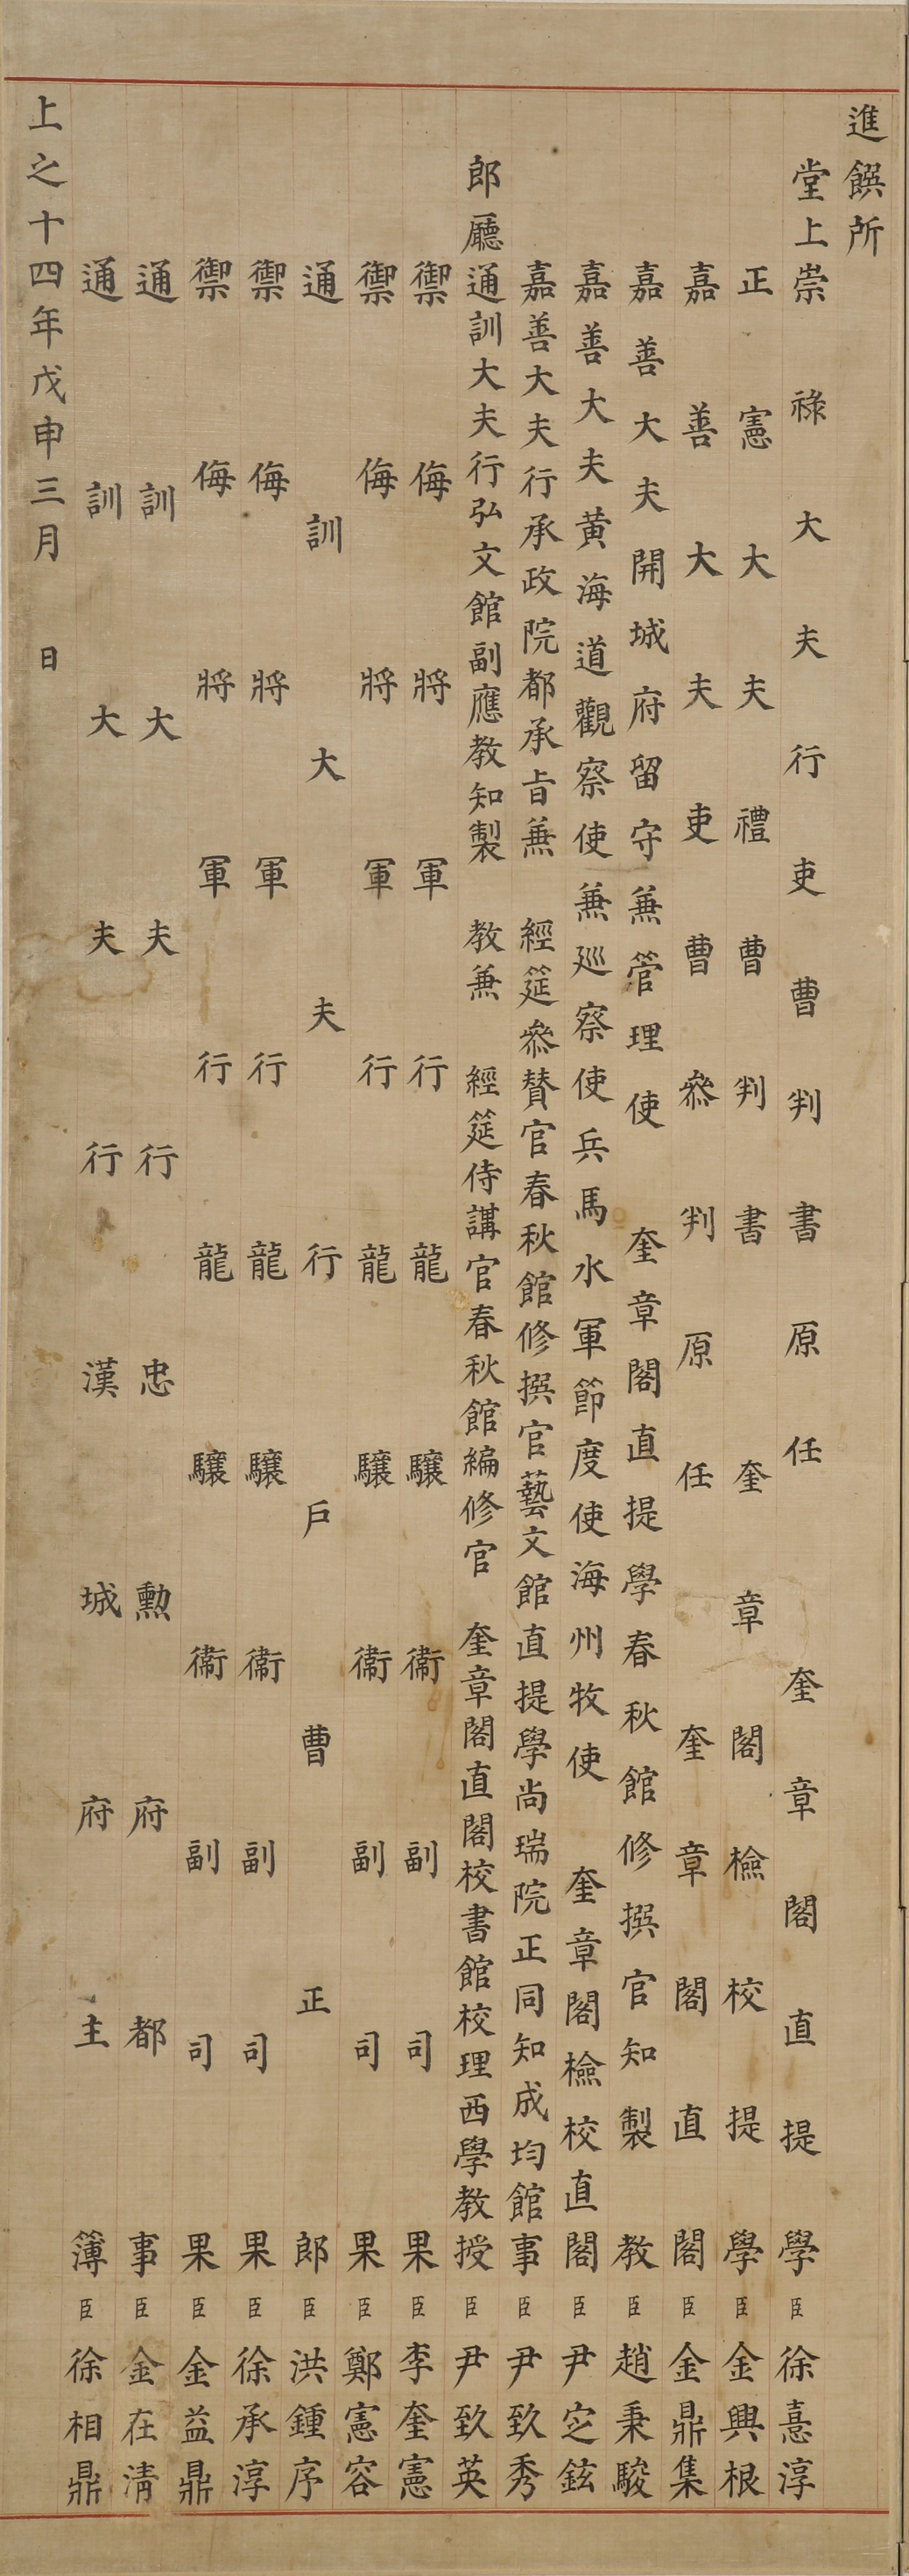 進饌所
堂上崇祿大夫行吏曹判書原任奎章閣直提學臣徐憙淳
正憲大夫禮曹判書奎章閣檢校提學臣金興根
嘉善大夫吏曹叅判原任奎章閣直閣臣金鼎集
嘉善大夫開城府留守兼管理使奎章閣直提學春秋館修撰官知製教臣趙秉駿
嘉善大夫黃海道觀察使兼廵察使兵馬水軍節度使海州牧使奎章閣檢校直閣臣尹定鉉
嘉善大夫行承政院都承旨兼經筵叅贊官春秋館修撰官藝文館直提學尚瑞院正同知成均館事臣尹致秀
郎廳通訓大夫行弘文館副應教知製教兼經筵侍講官春秋館編修官奎章閣直閣校書館校理西學教授臣尹致英
禦侮將軍行龍驤衛副司果臣李奎憲
禦侮將軍行龍驤衛副司果臣鄭憲容
通訓大夫行戶曹正郎臣洪鍾序
禦侮將軍行龍驤衛副司果臣徐承淳
禦侮將軍行龍驤衛副司果臣金益鼎
通訓大夫行忠勳府都事臣金在清
通訓大夫行漢城府主簿臣徐相鼎
上之十四年戊申三月 日